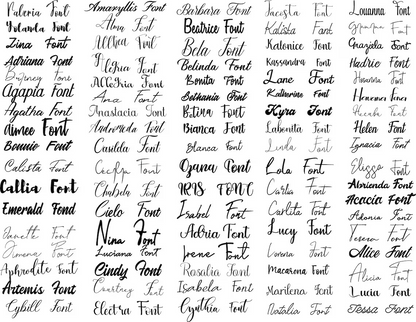 Valeria Font
Yolanda Font
Zina Font
Adriana Font
Disney Font
Agapia Font
Agatha Font
Aimee Font
Bonnie Font
Calista Font
Callia Font
Emerald Fond
Janette Font
Jimena Font
Aphrodite Font
Artemis Font
Cybill Font
Amaryllis Font
Alma Font
Allegra Font
Allegria Font
Ana Font
Anastacia Font
Andromeda Font
Candda Font
Cecilia Font
Chabela Font
Cielo Font
Nina Font
Luciana Font
Cindy Font
Courtney Font
Electra Font
Barbara Font
Beatrice Font
Bela Font
Belinda Font
Bonita Font
Bethania Font
Betina Font
Bianca Font
Blanca Font
Ozana Font
IRIS FONT
Isabel Font
Adria Font
Irene Font
Rosalia Font
Isabela Font
Cynthia Font
Jacosta Font
Kaliska Font
Katonice Font
Kassandra Font
Lane Font
Katharine Font
Kyra Font
Labonita Font
Linda Font
Lola Font
Carla Font
Carlita Font
Lucy Font
Lorena Font
Macarena Font
Marilena Font
Natalia Font
Louanna Font
Font
Graziela Font
Hadrie Font
Font
Font
Font
Helen Font
Ignacia Font
Font
Abrienda Font
Acacia Font
Adonia Font
Teresa Font
Alice Font
Alicia Font
Lucia Font
Tessa Font